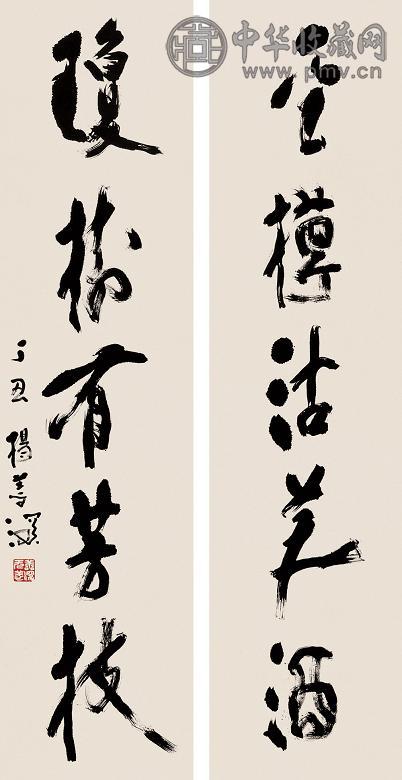 中华收藏网
www.pmv.cn
樽沽美酒
瓊樹有芳枝
丁丑 楊善深